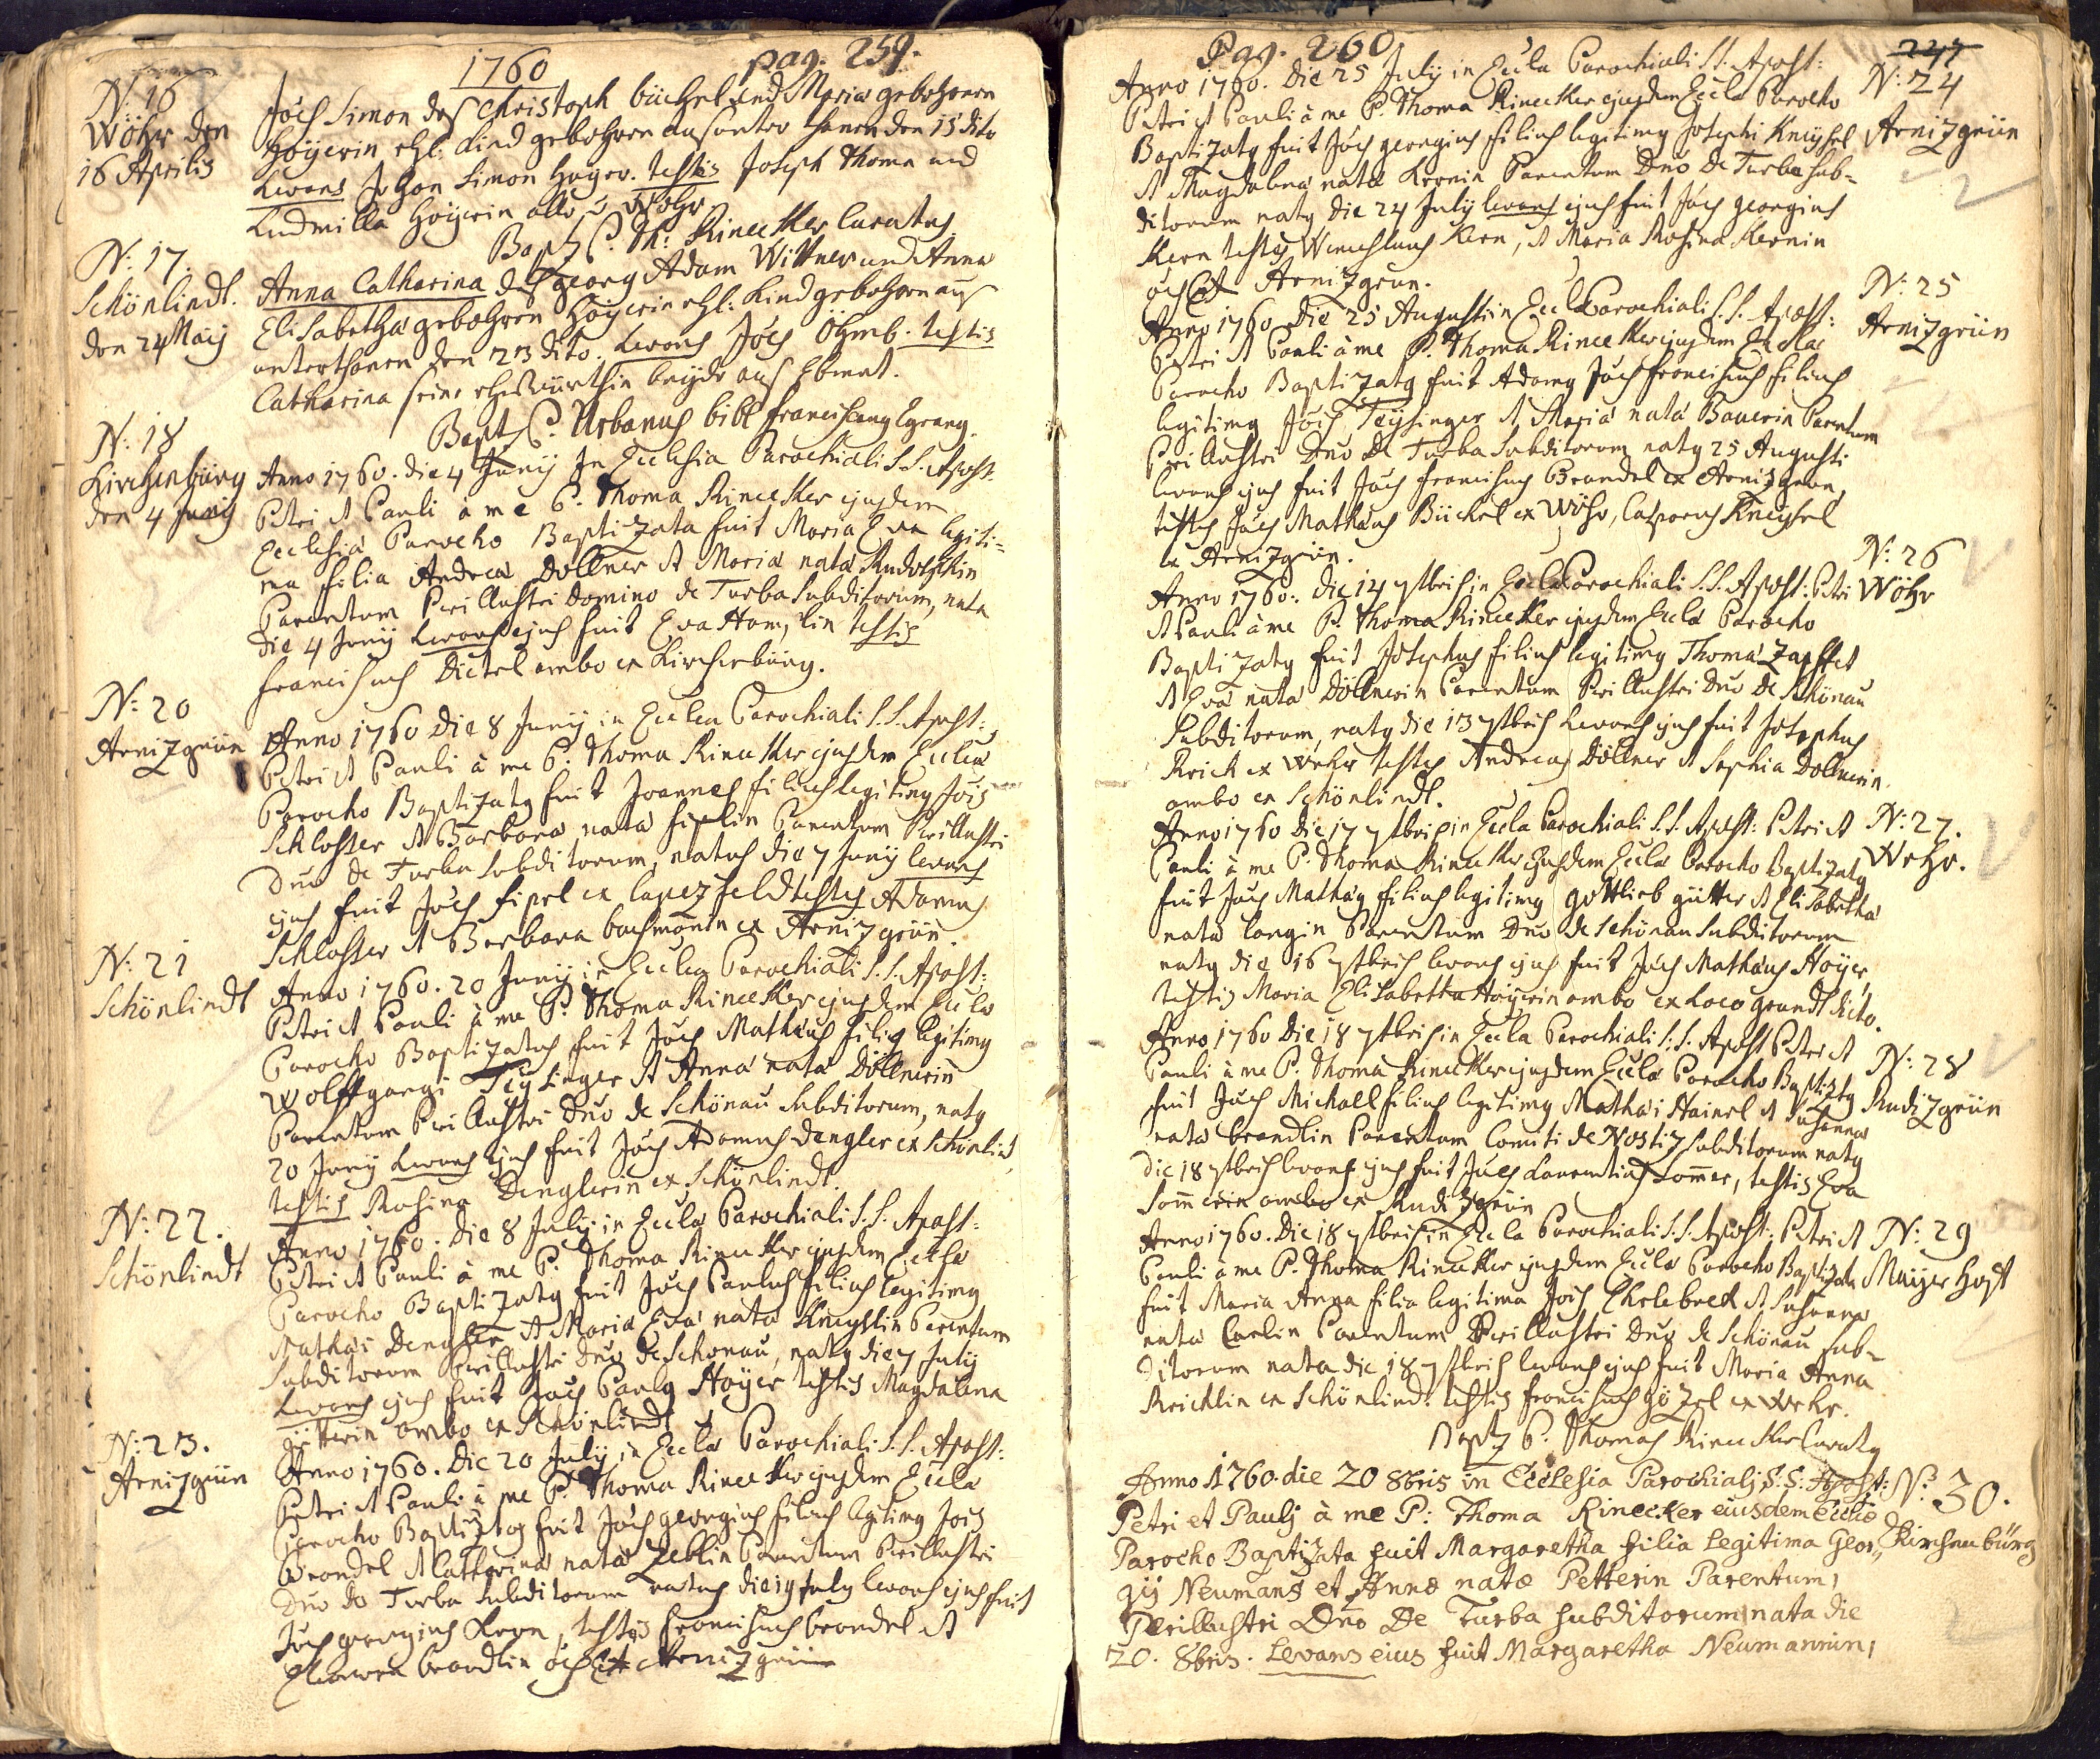 1760 pag. 259.
N: 16
Wöhr den
16 Aprilis
Joēs Simon des Christoph büchel und Maria gebohrnen
Hoÿerin ehl: Kind gebohren aus unterthanen den 15 dito
Levans Johan Simon Hager. testis Joseph Thoma und
Ludmilla Hoÿerin alle v Wöhr.
Bapt P. Th: Rinecker Curatus.
N: 17.
Schönlindt.
den 24 Maÿ
Anna Catharina des georg Adam Wittner und Anna
Elisabetha gebohrnen Hoÿerin ehl: Kind gebohren aus
unterthanen den 23 dito. Levans Joēs Öhmb. testis
Catharina seine ehewürthin beÿde aus Ebmet.
Bapt P. Urbanus bibl franciscang Egrang.
N: 18
Kirchenbürg
den 4 Junÿ
Anno 1760. die 4 Junÿ In Ecclesia Parochiali S.S. Apost.
Petri et Pauli à me P. Thoma Rinecker ejusdem
Ecclesiæ Parocho Baptizata fuit Maria Eva legiti=
ma filia Andreæ Döllner et Mariæ natæ Rudolphin
Parentum Perillustri Domino de Turba Subditorum, nata
die 4 Junÿ Levans ejus fuit Eva Hamÿlin testis
franciscus Dietel ambo ex Kirchenbürg.
N: 20
Arnizgrün
Anno 1760 Die 8 Junÿ in Eccla Parochiali S.S. Apost:
Petri et Pauli à me P. Thoma Rinecker ejusdem Ecclæ
Parocho Baptizatg fuit Joannes filius legitimg Jois
Schlosser et Barbara nata fiplin Parentum Perillustri
Dno de Turba Subditorum, natus die 7 Junÿ levans
ejus fuit Joēs fipel ex lapezfeldt testes Adamus
Schlosser et Barbara bachmanin ex Arnizgrün.
N: 21
Schönlindt
Anno 1760. 20 Junÿ in Eccla Parochiali S.S. Apost:
Petri et Pauli à me P. Thoma Rinecker ejusdem Ecclæ
Parocho Baptizatus fuit Joēs Mathæus filig legitimg
Wolffgangi Teÿsinger et Anna nata Döllnerin
Parentum Perillustri Dno de Schönau Subditorum, natg
20 Junÿ Levans ejus fuit Joēs Adamus Dengler ex Schönlind
testis Rosina Denglerin ex Schönlindt.
N: 22.
Schönlindt
Anno 1760. Die 8 Julÿ in Eccla Parochiali S.S. Apost:
Petri et Pauli à me P. Thoma Rinecker ejusdem Ecclæ
Parocho Baptizatg fuit Joēs Paulus filius legitimg
Mathæi Dengler et Maria Eva nata Kneÿslin Parentum
Subditorum Perillustri Dno de Schonau, natg die 7 Julÿ
Levans ejus fuit Joēs Paulg Hoÿer testis Magdalena
gütterin ambo ex Schönlindt
N: 23.
Arnizgrün
Anno 1760. Die 20 Julÿ in Eccla Parochiali S.S. Apost:
Petri et Pauli à me P. Thoma Rinecker ejusdem Eccla
Parocho Baptizatg fuit Joēs georgius filius legitimg Jois
Brandel et Catharina nata Zetlin Parentum Perillustri
Dno de Turba Subditorum natus die 19 July levans ejus fuit
Joēs georgius Kern, testes franciscus brandel et
Eleonora brandlin ōes ex Arnizgrün
Pag. 260 247
N: 24
Arnizgrün
Anno 1760. Die 25 Julÿ in Eccla Parochiali S.S. Apost:
Petri et Pauli à me P. Thoma Rinecker ejusdem Eccla Parocho
Baptizatg fuit Joēs georgius filius legitimg Josephi Kneÿsel
et Magdalena nata Kernin Parentum Dno de Turba Sub=
ditorum natg die 24 July levans ejus fuit Joēs georgius
Kern testes Wenceslaus Kern, et Maria Rosina Kernin
ōes ex Arnizgrun.
N: 25
Arnizgrün
Anno 1760 Die 25 Augusti in Eccla Parochiali S.S. Apost:
Petri et Pauli à me P. Thoma Rinecker ejusdem Ecclæ
Parocho Baptizatg fuit Adamg Joēs franciscus filius
legitimg Joēs Teÿsinger et Maria nata Bauerin Parentum
Perillustri Dno de Turba Subditorum natg 25 Augusti
levans ejus fuit Joēs franciscus Brandel ex Arnizgrun,
testes Joēs Mathæus Büchel ex Wöhr, Casparus Kneÿsel
ex Arnizgrün.
N: 26
Wöhr
Anno 1760. die 14 7tbris in Eccla Parochiali S.S. Apost: Petri
et Pauli à me P. Thoma Rinecker ejusdem Eccla Parocho
Baptizatg fuit Josephus filius legitimg Thoma Zapffet
et Eva nata Döllnerin Parentum Perillustri Dno de Schönau
Subditorum, natg die 13 7tbris Levans ejus fuit Josephus
Reich ex Wehr testes Andreas Döllner et Sophia Dollnerin
ambo ex Schönlindt.
N: 27.
Wehr.
Anno 1760 die 17 7tbris in Eccla Parochiali S.S. Apost: Petri et
Pauli à me P. Thoma Rinecker ejusdem Eccla Parocho Baptizatg
fuit Joēs Mathæg filius legitimg gottlieb gütter et Elisabetha
nata langin Parentum Dno de Schönau Subditorum
natg die 16 7tbris levans ejus fuit Joēs Mathæus Hoÿer,
testis Maria Elisabetha Hoÿerin ambo ex Loco grundt dicto.
N: 28
Rudizgrün
Anno 1760 Die 18 7tbris in Eccla Parochiali S.S. Apost Petri et
Pauli à me P. Thoma Rinecker ejusdem Eccla Parocho Baptiztg
fuit Joēs Michael filius legitimg Mathæi Hainel et Susanna
nata brandlin Parentum Comiti de Nostiz Subditorum natg
Die 18 7tbris levans ejus fuit Joēs Laurentius Sommer, testis Eva
Som̄erin ambo ex Rudizgrün
N: 29
Maÿer hoft
Anno 1760. Die 18 7tbris in Eccla Parochiali S.S. Apost: Petri et
Pauli à me P. Thoma Rinecker ejusdem Ecclæ Parocho Baptizata
fuit Maria Anna filia legitima Jois Ehrlebred et Susanna
nata Carlin Parentum Perillustri Dno de Schönau Sub=
ditorum nata die 18 7tbris levans ejus fuit Maria Anna
Reichlin ex Schönlind. testis franciscus gözel ex Wehr.
Bapt P. Thomas Rinecker Curatg
N: 30.
Kirchenbürg
Anno 1760. die 20 8bris in Ecclesia Parochialj S:S: Apost:
Petri et Paulj à me P: Thoma Rinecker eiusdem Ecclæ
Parocho Baptizata fuit Margaretha filia Legitima Geor„
gÿ Neumans et Annæ natæ Petterin Parentum,
Perillustri Dno De Turba subditorum nata die
20. 8bris. Levans eius fuit Margaretha Neumannin,